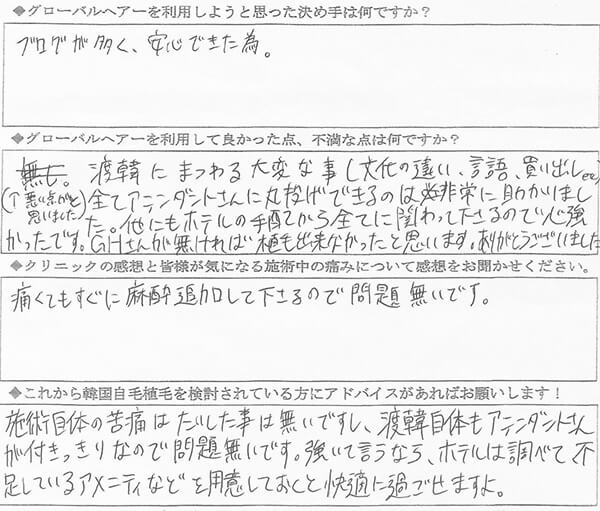 ◆グローバルヘアーを利用しようと思った決め手は何ですか？
ブログが多く、安心できた為。
◆グローバルヘアーを利用して良かった点、不満な点は何ですか？
無し。渡韓にまつわる大変な事(文化の違い、言語、買い出しetc)
(↑悪い点がと思いました)全てアテンダントさんに丸投げできるのは非常に助かりまし
た。他にもホテルの手配から全てに関わって下さるので心強
かったです。GHさんが無ければ植毛出来なかったと思います。ありがとうございました
◆クリニックの感想と皆様が気になる施術中の痛みについて感想をお聞かせください。
痛くてもすぐに麻酔追加して下さるので問題無いです。
◆これから韓国自毛植毛を検討されている方にアドバイスがあればお願いします！
施術自体の苦痛はたいした事は無いですし、渡韓自体もアテンダントさん
が付きっきりなので問題無いです。強いて言うなら、ホテルは調べて不
足しているアメニティなどを用意しておくと快適に過ごせますよ。